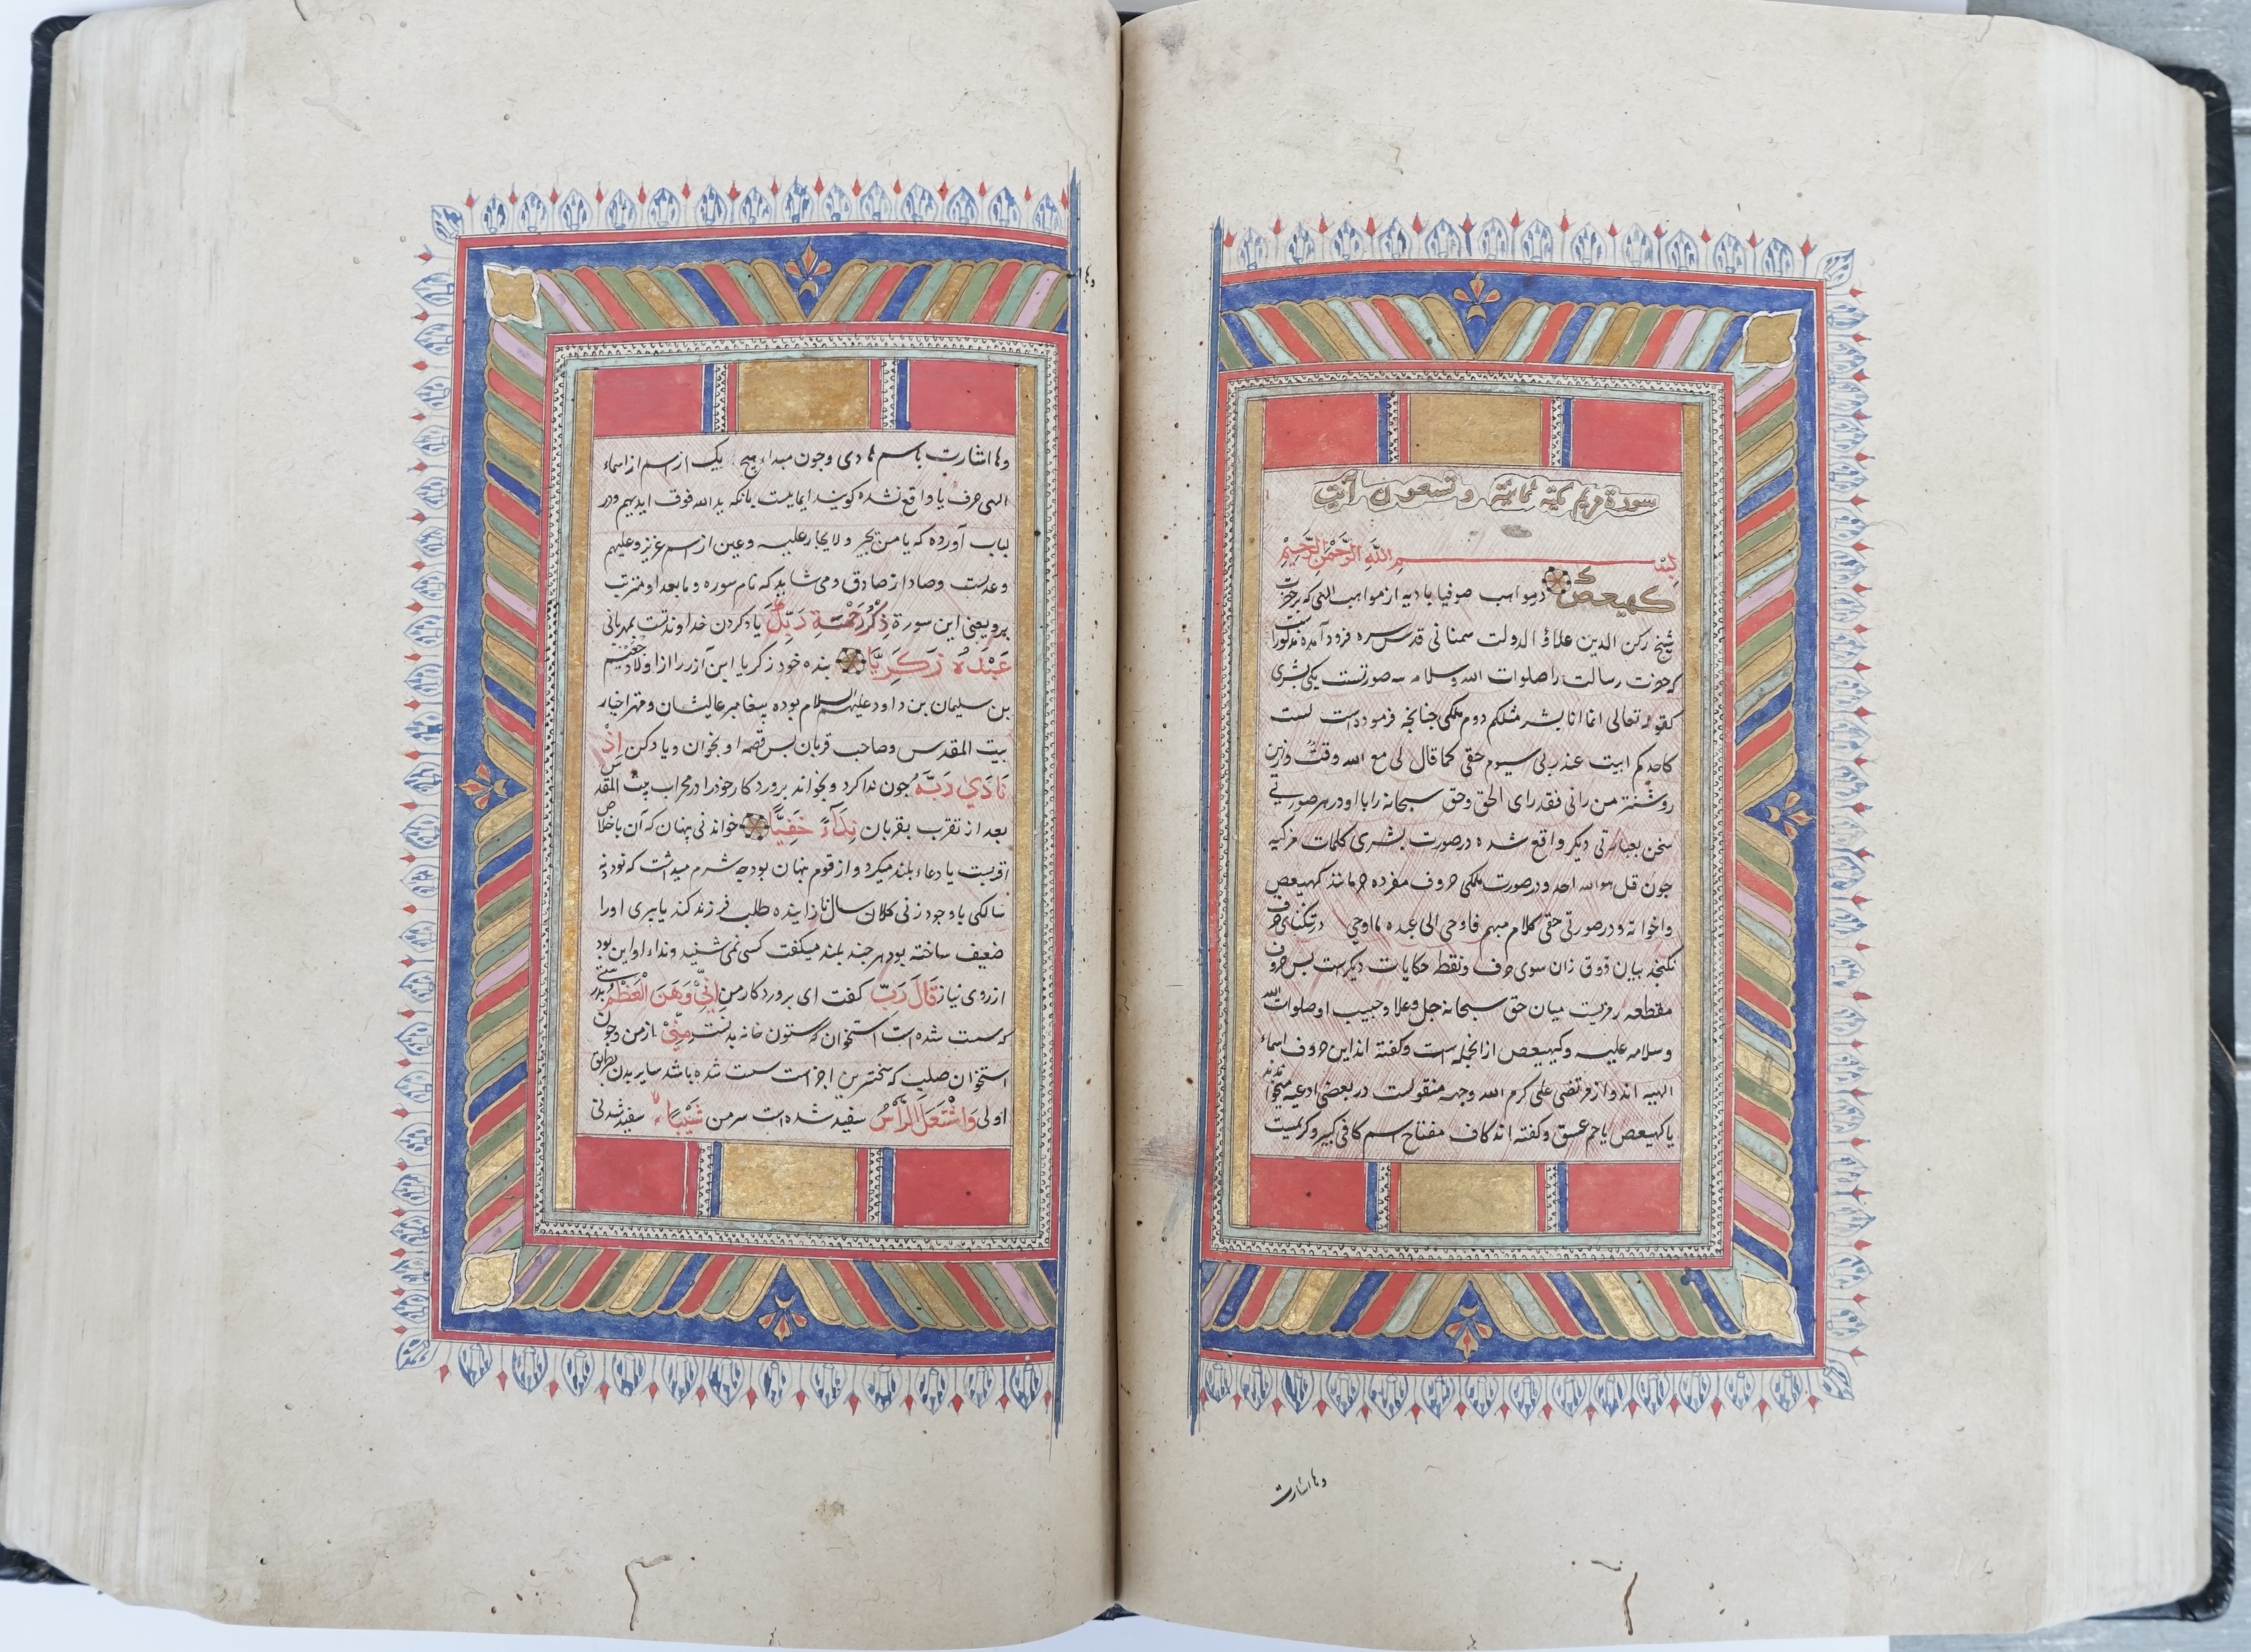 سورة مریم مکیة ثمانیة و تسعون آیت
بسم الله الرحمن الرحیم
كهيعص در مواهب صوفیا بادیه از مواهب الهی که بر حضرت
شیخ رکن الدین علاؤ الدولت سمنانی قدس سره فرود آمده مذکور است
که حضرت رسالت را صلوات الله وسلامه سه صورتست یکی بشری
کقوله تعالی انما انا بشر مثلکم دوم ملکی جنانجه فرموده است لست
کاحدکم ابیت عند ربی سیوم حقی کما قال لی مع الله وقت وازین
روشنتر من رانی فقد رای الحق وحق سبحانه را با او در هر صورتی
سخن بعبارتی دیکر واقع شده در صورت بشری کلمات مرکبه
جون قل هو الله احد و در صورت ملکی حروف مفرده مانند کهیعص
واخواته و در صورتی حقی کلام مبهم فاوحی الی عبده ما اوحی در تنکنای حرف
نکنجد بیان ذوق زان سوی حرف ونقط حکایات دیکرست بس حروف
مقطعه رمزیست میان حق سبحانه جل وعلا و حبیب او صلوات الله
وسلامه علیه وکهیعص از انجمله است وکفته اند این حروف اسماء
الهیه اند و از مرتضی علی کرم الله وجهه منقولست در بعضی ادعیه میخواندند
یا کهیعص یا حم عسق وکفته اند کاف مفتاح اسم کافی کبیر و کریمست
وها اشارت
وها
وها اشارت باسم هادی وجون مبداء هیج یک از اسم از اسماء
الهی حرف یا واقع نشده کویند ایمایست بانکه ید الله فوق ایدیهم ودر
لباب آورده که یا من یجیر ولا یجار علیه وعین از اسم عزیز وعلیم
وعدلست وصاد از صادق ومی شاید که نام سوره وما بعد او مترتب
برو یعنی این سورة ذِكْرُ رَحْمَتِ رَبِّكَ یاد کردن خداوند تست بمهربانی
عَبْدَهُ زَكَرِيَّا بنده خود زکریا ابن آزر را از اولاد رجعیم
بن سلیمان بن داود علیهم السلام بوده پیغامبر عالیشان ومهتر احبار
بیت المقدس وصاحب قربان بس قصه او بخوان ویاد کن اِذْ
نَادَىٰ رَبَّهُ جون ندا کرد وبخواند بروردکار خود را در محراب بیت المقدس
بعد از تقرب بقربان نِدَآءً خَفِيًّا خواندنی بنهان که آن باخلاص
اقربست یا دعاء بلند میکرد و از قوم بنهان بود جه شرم میداشت که نود و نه
سالکی با وجود زنی کلان سال نازاینده طلب فرزند کند یا بیری او را
ضعیف ساخته بود هر جند بلند میکفت کسی نمی شنید ونداء او این بود
از روی نیاز قَالَ رَبِّ کفت ای بروردکار من اِنِّي وَهَنَ الْعَظْمُ بدرستی
که سست شده است استخوان که ستون خانه بدنست مِنِّيْ از من وجون
استخوان صلب که سخترین اجزاست سست شده باشد سایر بدن بطریق
اولی وَاشْتَعَلَ الرَّأْسُ سفید شده است سر من شَيْبًا سفید شدنی